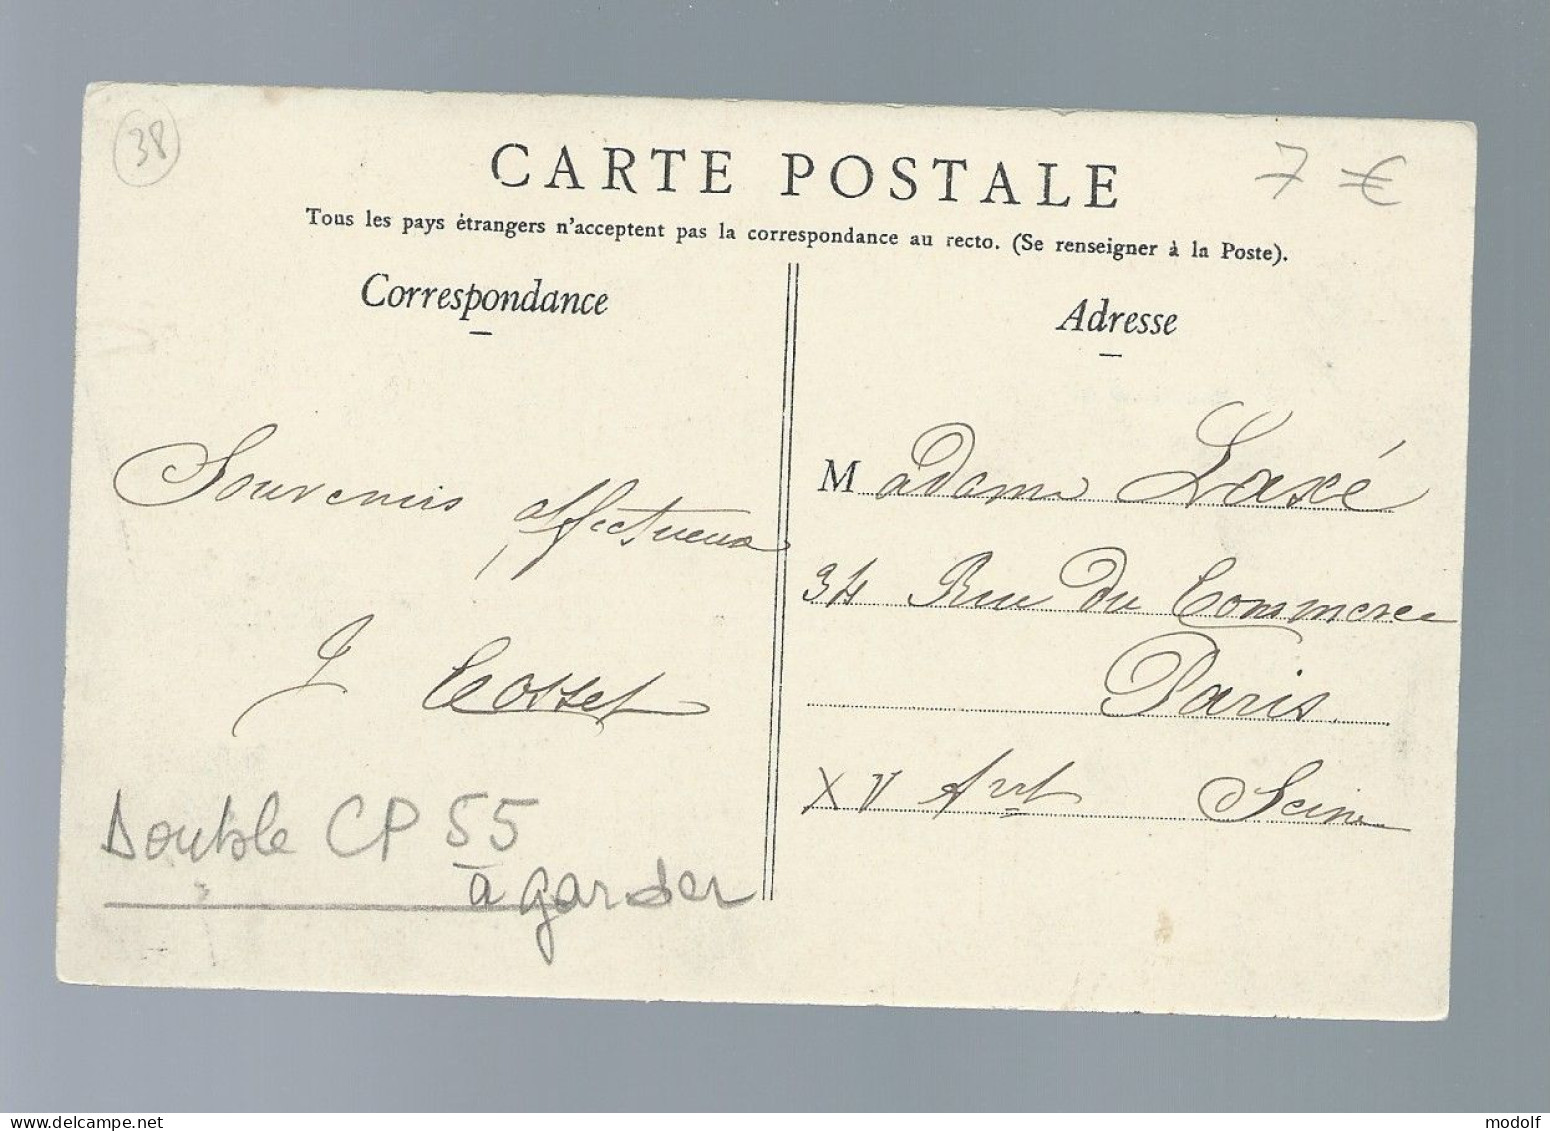 38
7 €
CARTE POSTALE
Tous les pays étrangers n'acceptent pas la correspondance au recto. (Se renseigner à la Poste).
Correspondance
Adresse
Souvenirs affectueux
J Cosset
Madame Laxé
34 Rue du Commerce
Paris
XV Arrt Seine
Double CP 55
à garder
modolf